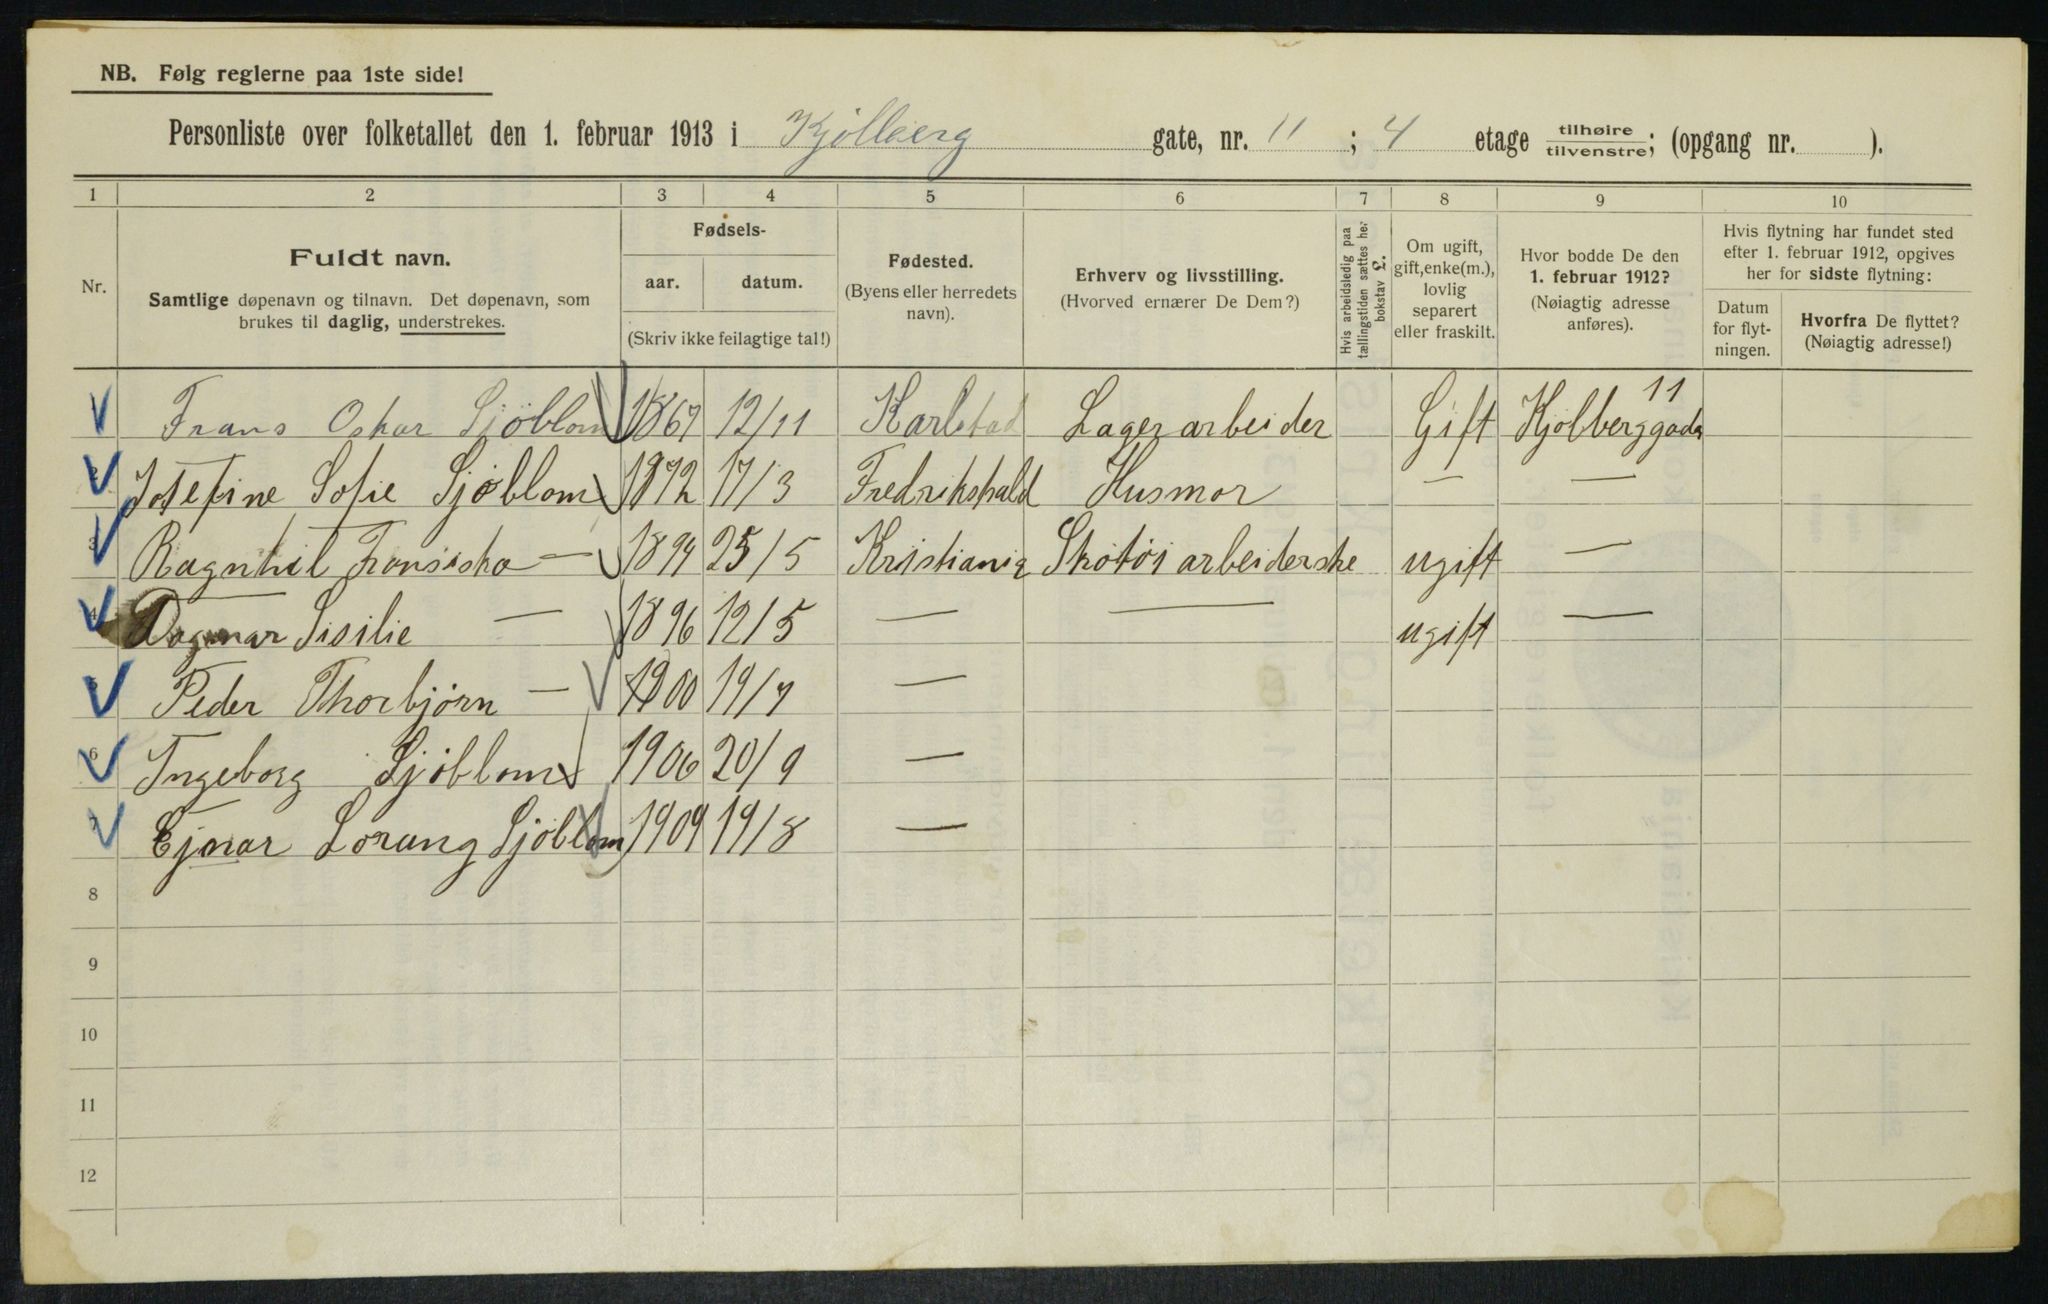 NB. Følg reglerne paa 1ste side!
Personliste over folketallet den 1. februar 1913 i Kjölberg gate, nr. 11 ; 4 etage tilhøire tilvenstre; (opgang nr. ).
1 2 3 4 5 6 7 8 9 10
Nr.
Fuldt navn.
Samtlige døpenavn og tilnavn. Det døpenavn, som
brukes til daglig, understrekes.
Fødsels-
aar. datum.
(Skriv ikke feilagtige tal!)
Fødested.
(Byens eller herredets
navn).
Erhverv og livsstilling.
(Hvorved ernærer De Dem?)
Hvis arbeidsledig paa
tællingstiden sættes her
bokstav L.
Om ugift,
gift, enke(m.),
lovlig
separert
eller fraskilt.
Hvor bodde De den
1. februar 1912?
(Nøiagtig adresse
anføres).
Hvis flytning har fundet sted
efter 1. februar 1912, opgives
her for sidste flytning:
Datum
for flyt-
ningen.
Hvorfra De flyttet?
(Nøiagtig adresse!)
Frans Oskar Sjöblom 1867 12/11 Karlstad Lagerarbeider Gift Kjölberggada 11
2 Josefine Sofie Sjøblom 1872 17/3 Fredrikshald Husmor — —
3 Ragnhil Fransiska — 1894 25/5 Kristiania Skotöiarbeiderske ugift —
4 Dagmar Sisilie — 1896 12/5 — — ugift —
5 Peder Thorbjørn — 1900 19/7 —
6 Ingeborg Sjöblom 1906 20/9 —
7 Ejnar Lorang Sjöblom 1909 19/8 —
8
9
10
11
12